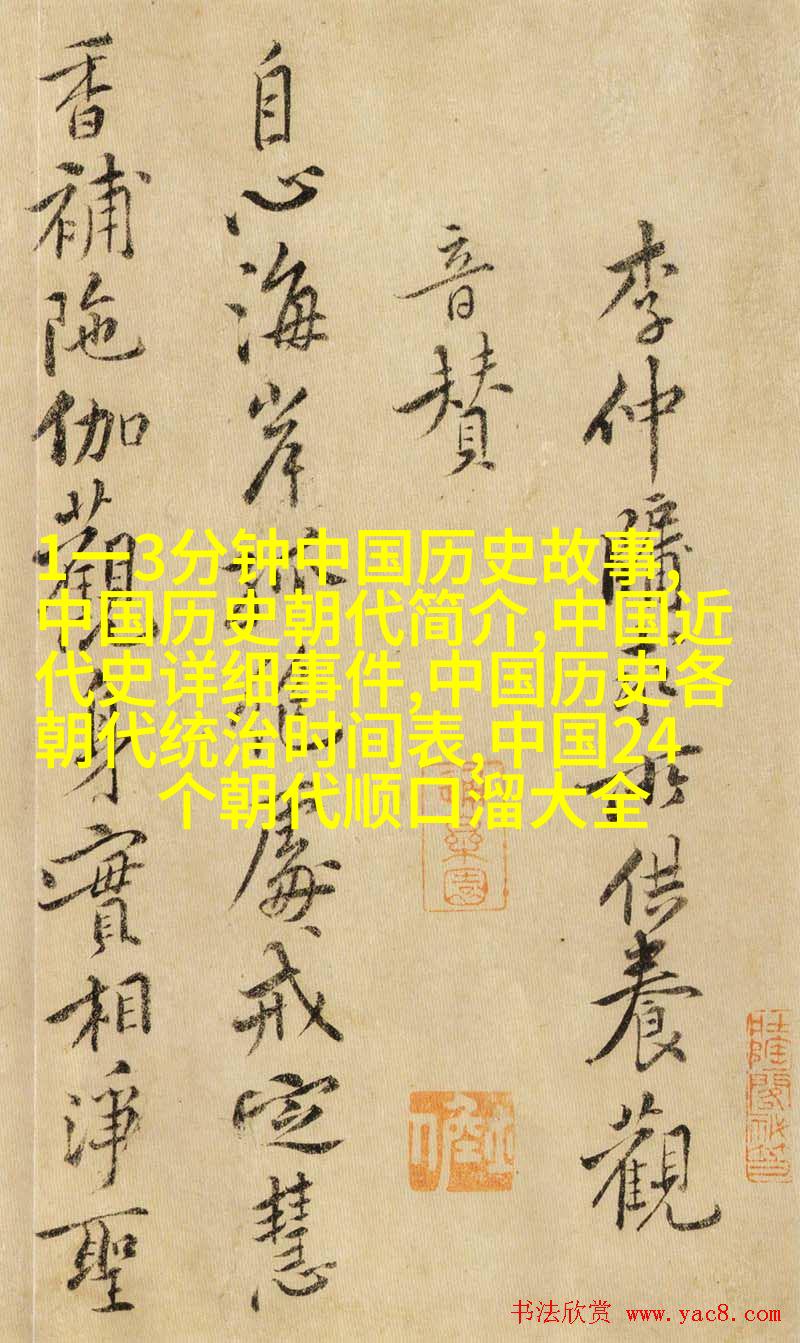 李仲牖求所供養觀
音贊
自心海岸孤絶處戒定慧
香補陁伽觀身實相淨聖
1一3分钟中国历史故事,
中国历史朝代简介,中国近
代史详细事件,中国历史各
朝代统治时间表,中国24
个朝代顺口溜大全
书法欣赏 www.yac8.com